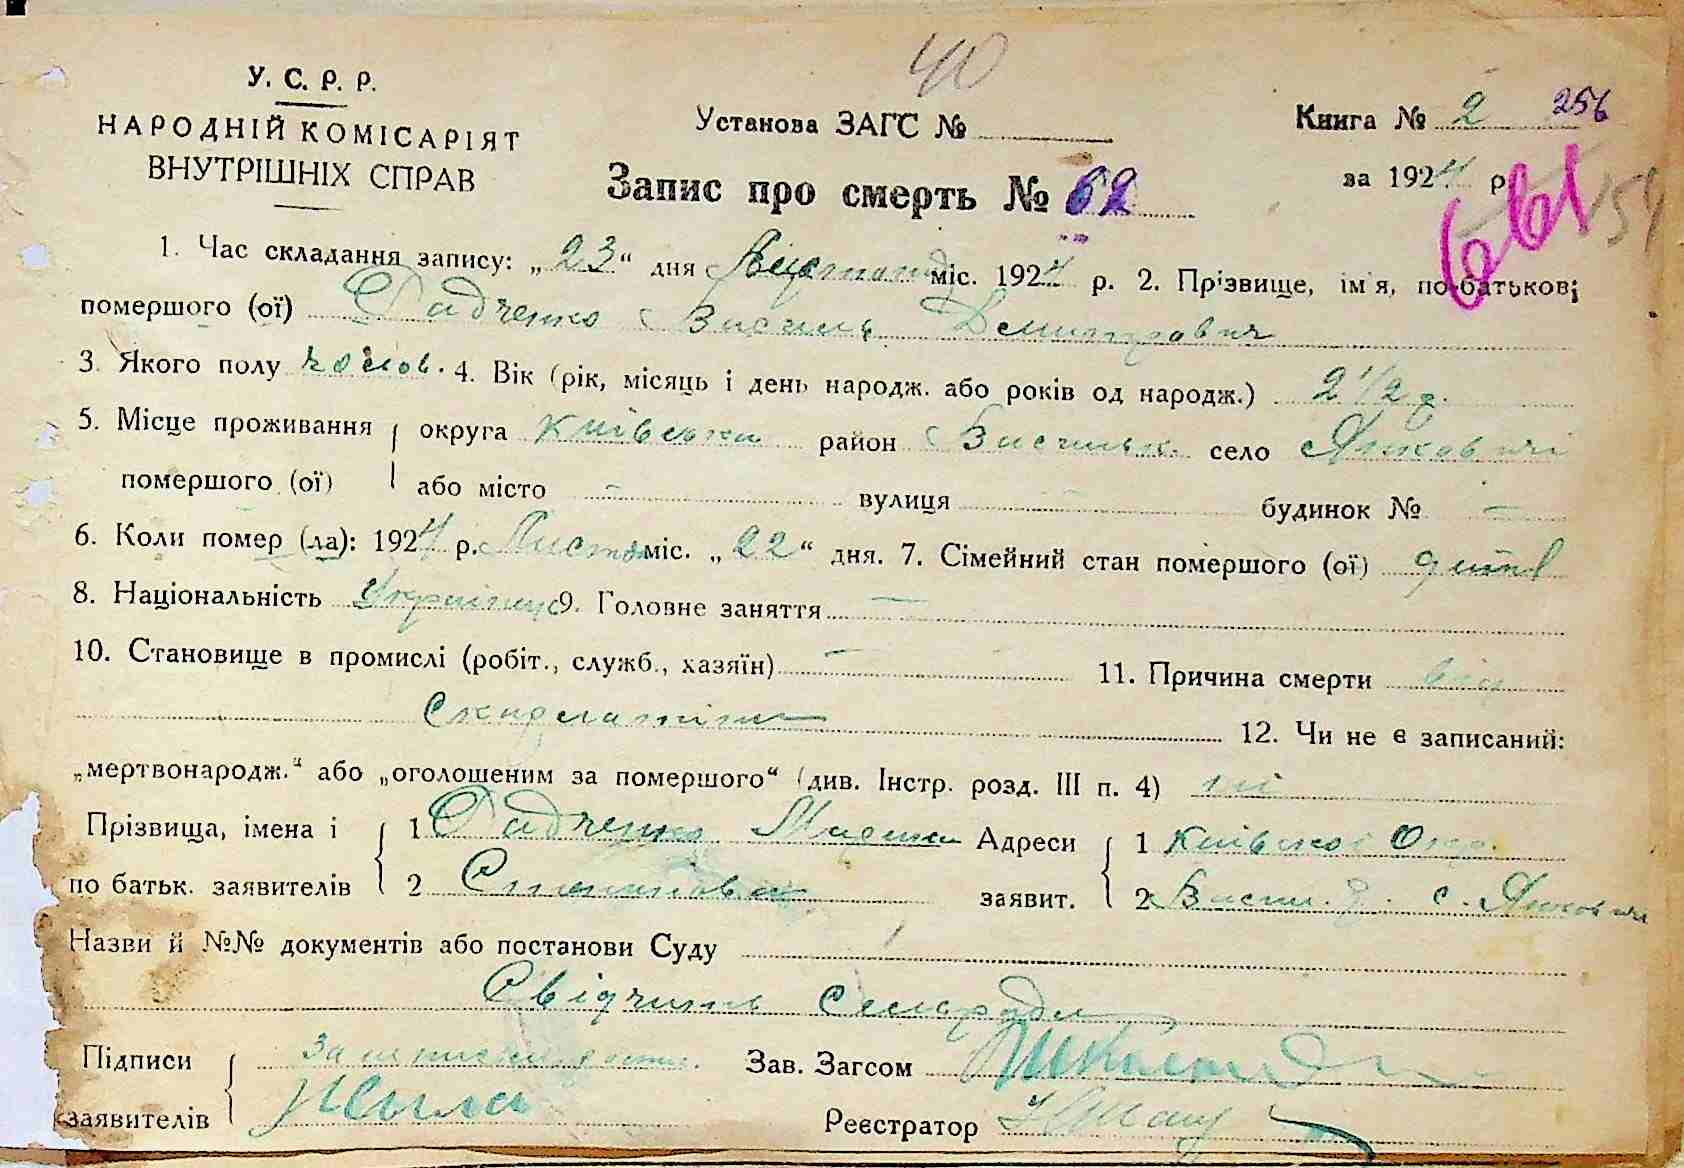 40
У. С. Р. Р.
НАРОДНІЙ КОМІСАРІЯТ
ВНУТРІШНІХ СПРАВ
Установа ЗАГС №
Книга № 2 256
за 1924 р. 661 154
Запис про смерть № 62
1. Час складання запису: „23“ дня Листопад міс. 1924 р. 2. Прізвище, ім'я, по-батькові
помершого (ої) Радченко Василь Демитрович
3. Якого полу чолов. 4. Вік (рік, місяць і день народж. або років од народж.) 2 1/2 р.
5. Місце проживання округа Київська район Васильк. село Янковичі
помершого (ої) або місто – вулиця – будинок № –
6. Коли помер (ла): 1924 р. Листоп міс. „22“ дня. 7. Сімейний стан помершого (ої) дитя
8. Національність Українец 9. Головне заняття –
10. Становище в промислі (робіт., служб., хазяїн) – 11. Причина смерти від
скарлатіни 12. Чи не є записаний:
„мертвонародж.“ або „оголошеним за помершого“ (див. Інстр. розд. III п. 4) ні
Прізвища, імена і 1 Радченко Марина Адреси 1 Київської Окр.
по батьк. заявителів 2 Степановна заявит. 2 Васил. р. с. Янковичі
Назви й №№ документів або постанови Суду
Свідчить Сельради
Підписи За неписьменістю Зав. Загсом
заявителів Реєстратор